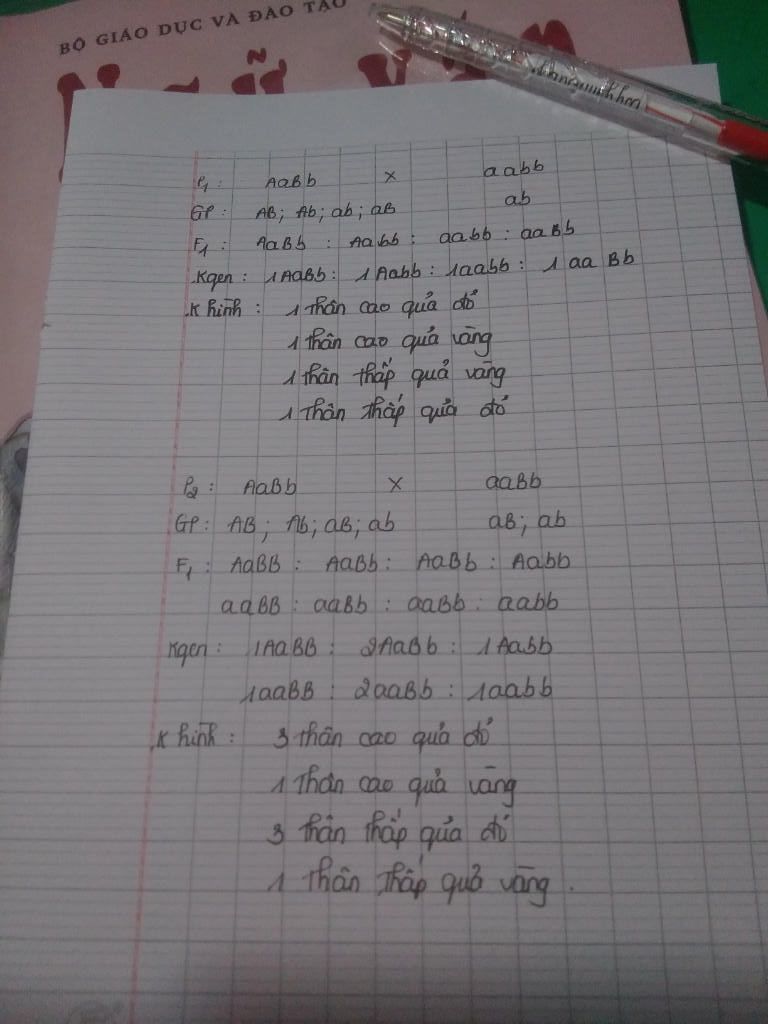 BỘ GIÁO DỤC VÀ ĐÀO TẠO
P1: AaBb x aabb
GP: AB; Ab; ab; aB ab
F1: AaBb : Aabb : aabb : aaBb
Kgen: 1AaBb: 1Aabb: 1aabb: 1aaBb
K hình: 1 thân cao quả đỏ
1 thân cao quả vàng
1 thân thấp quả vàng
1 thân thấp quả đỏ
P2: AaBb x aaBb
GP: AB; Ab; aB; ab aB; ab
F1: AaBB : AaBb : AaBb : Aabb
aaBB : aaBb : aaBb : aabb
Kgen: 1AaBB : 2AaBb : 1Aabb
1aaBB : 2aaBb : 1aabb
K hình: 3 thân cao quả đỏ
1 thân cao quả vàng
3 thân thấp quả đỏ
1 thân thấp quả vàng.